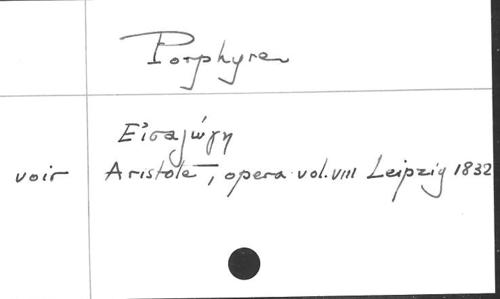 Porphyre
Εἰσαγώγη
voir Aristote, opera vol. VIII Leipzig 1832